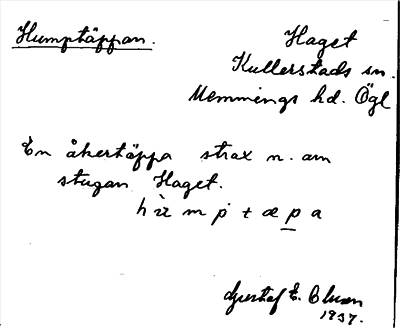 Humptäppan.
Haget
Kullerstads sn.
Memmings hd. Ögl
En åkertäppa strax n. om
stugan Haget.
Gustaf E. Olsson
1937.